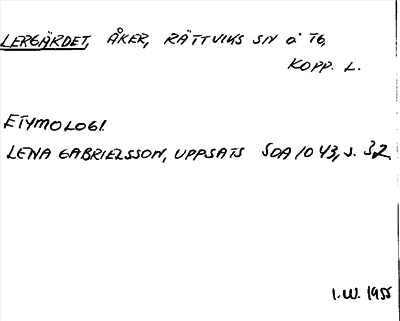 LERGÄRDET, ÅKER, RÄTTVIKS SN Ö TG,
KOPP. L.
ETYMOLOGI.
LENA GABRIELSSON, UPPSATS SOA 1043, s. 32
I.W. 1955